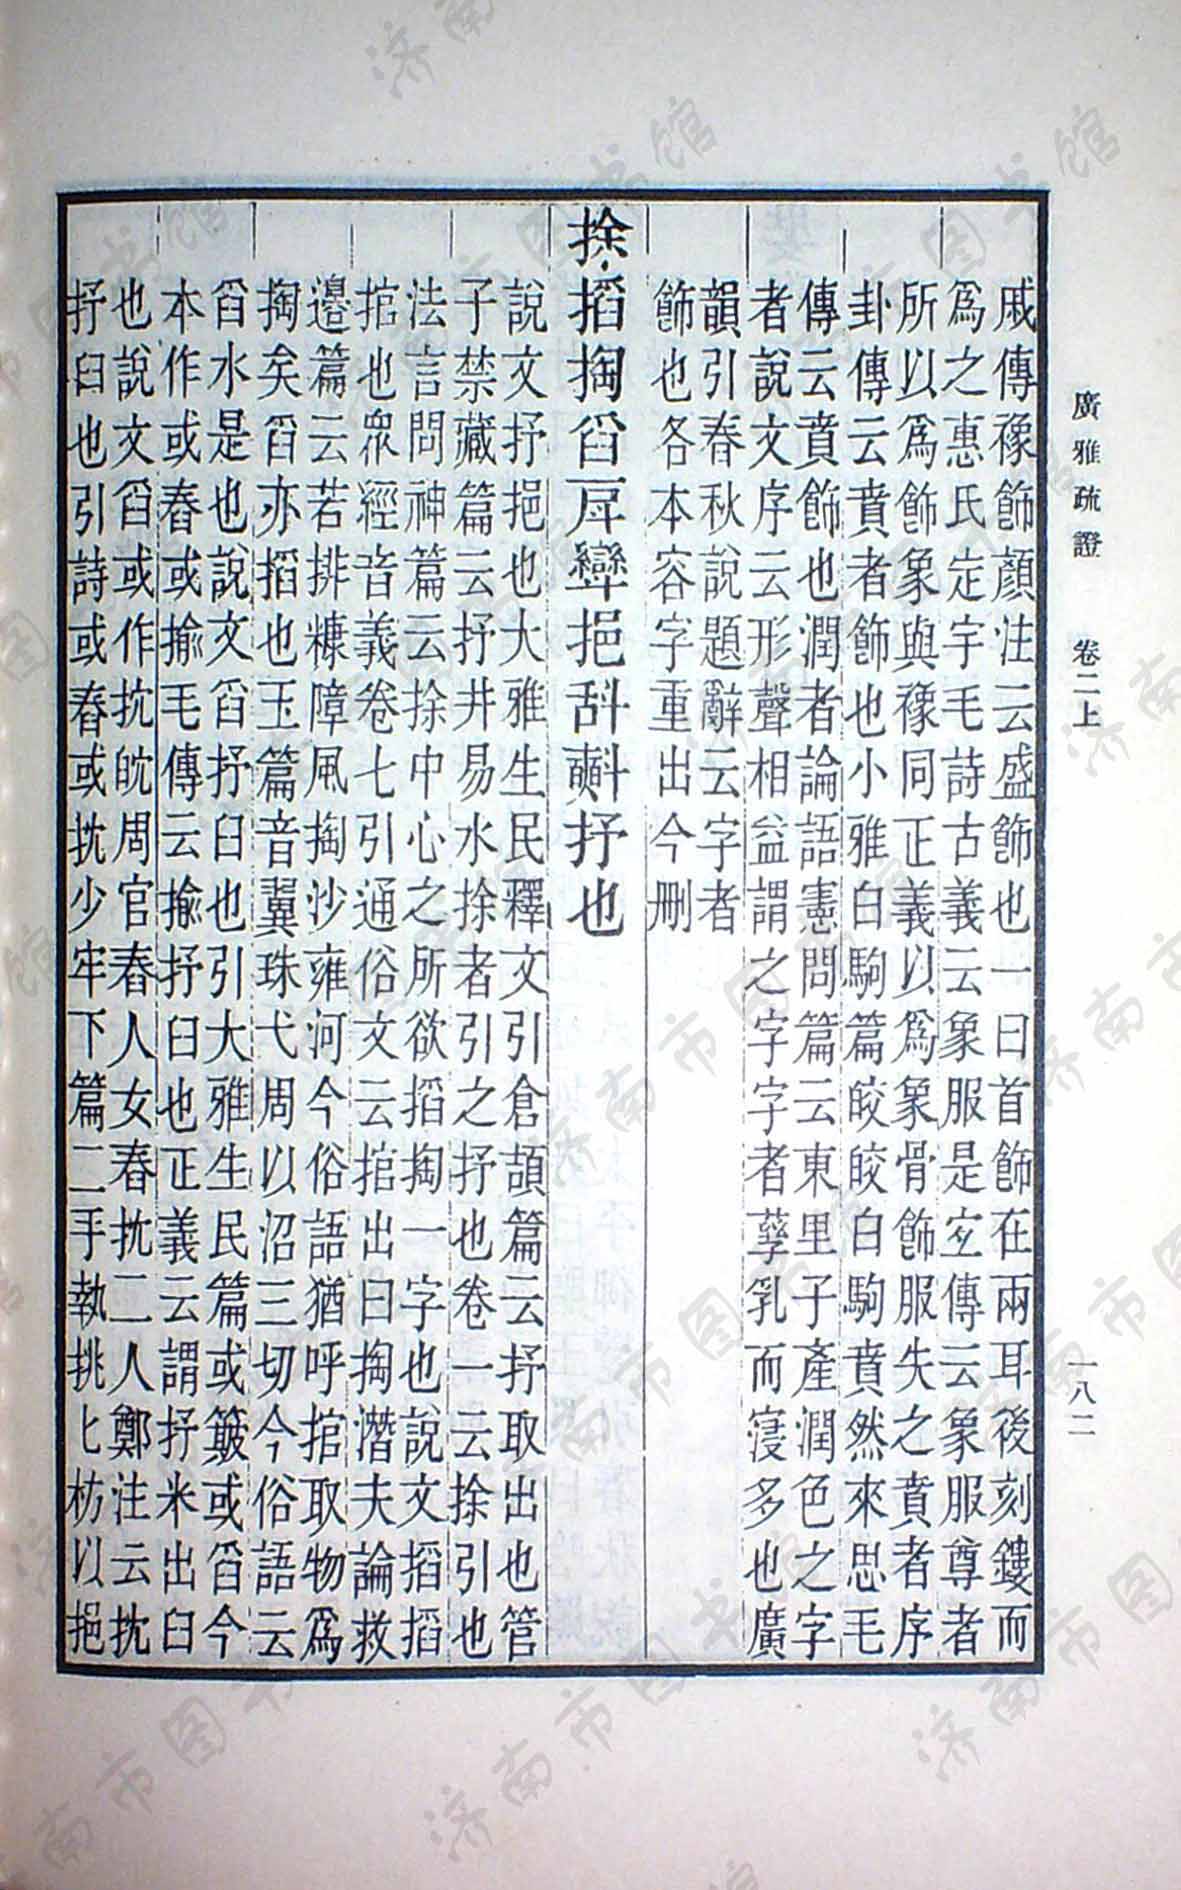 廣雅疏證　卷二上　一八二
戚傳襐飾顏注云盛飾也一曰首飾在兩耳後刻鏤而
爲之惠氏定宇毛詩古義云象服是宐傳云象服尊者
所以爲飾象與襐同正義以爲象骨飾服失之賁者序
卦傳云賁者飾也小雅白駒篇皎皎白駒賁然來思毛
傳云賁飾也潤者論語憲問篇云東里子產潤色之字
者說文序云形聲相益謂之字字者孳乳而寖多也廣
韻引春秋說題辭云字者
飾也各本容字重出今刪
捈搯掏舀戽㧳挹㪶㪺抒也
說文抒挹也大雅生民釋文引倉頡篇云抒取出也管
子禁藏篇云抒井易水捈者引之抒也卷一云捈引也
法言問神篇云捈中心之所欲搯掏一字也說文搯搯
捾也眾經音義卷七引通俗文云捾出曰掏潛夫論救
邊篇云若排糠障風掏沙雍河今俗語猶呼捾取物爲
掏矣舀亦搯也玉篇音翼珠弋周以沼三切今俗語云
舀水是也說文舀抒臼也引大雅生民篇或簸或舀今
本作或舂或揄毛傳云揄抒臼也正義云謂抒米出臼
也說文舀或作抗㿟周官舂人女舂抗二人鄭注云抗
抒臼也引詩或舂或抗少牢下篇二手執挑匕枋以挹